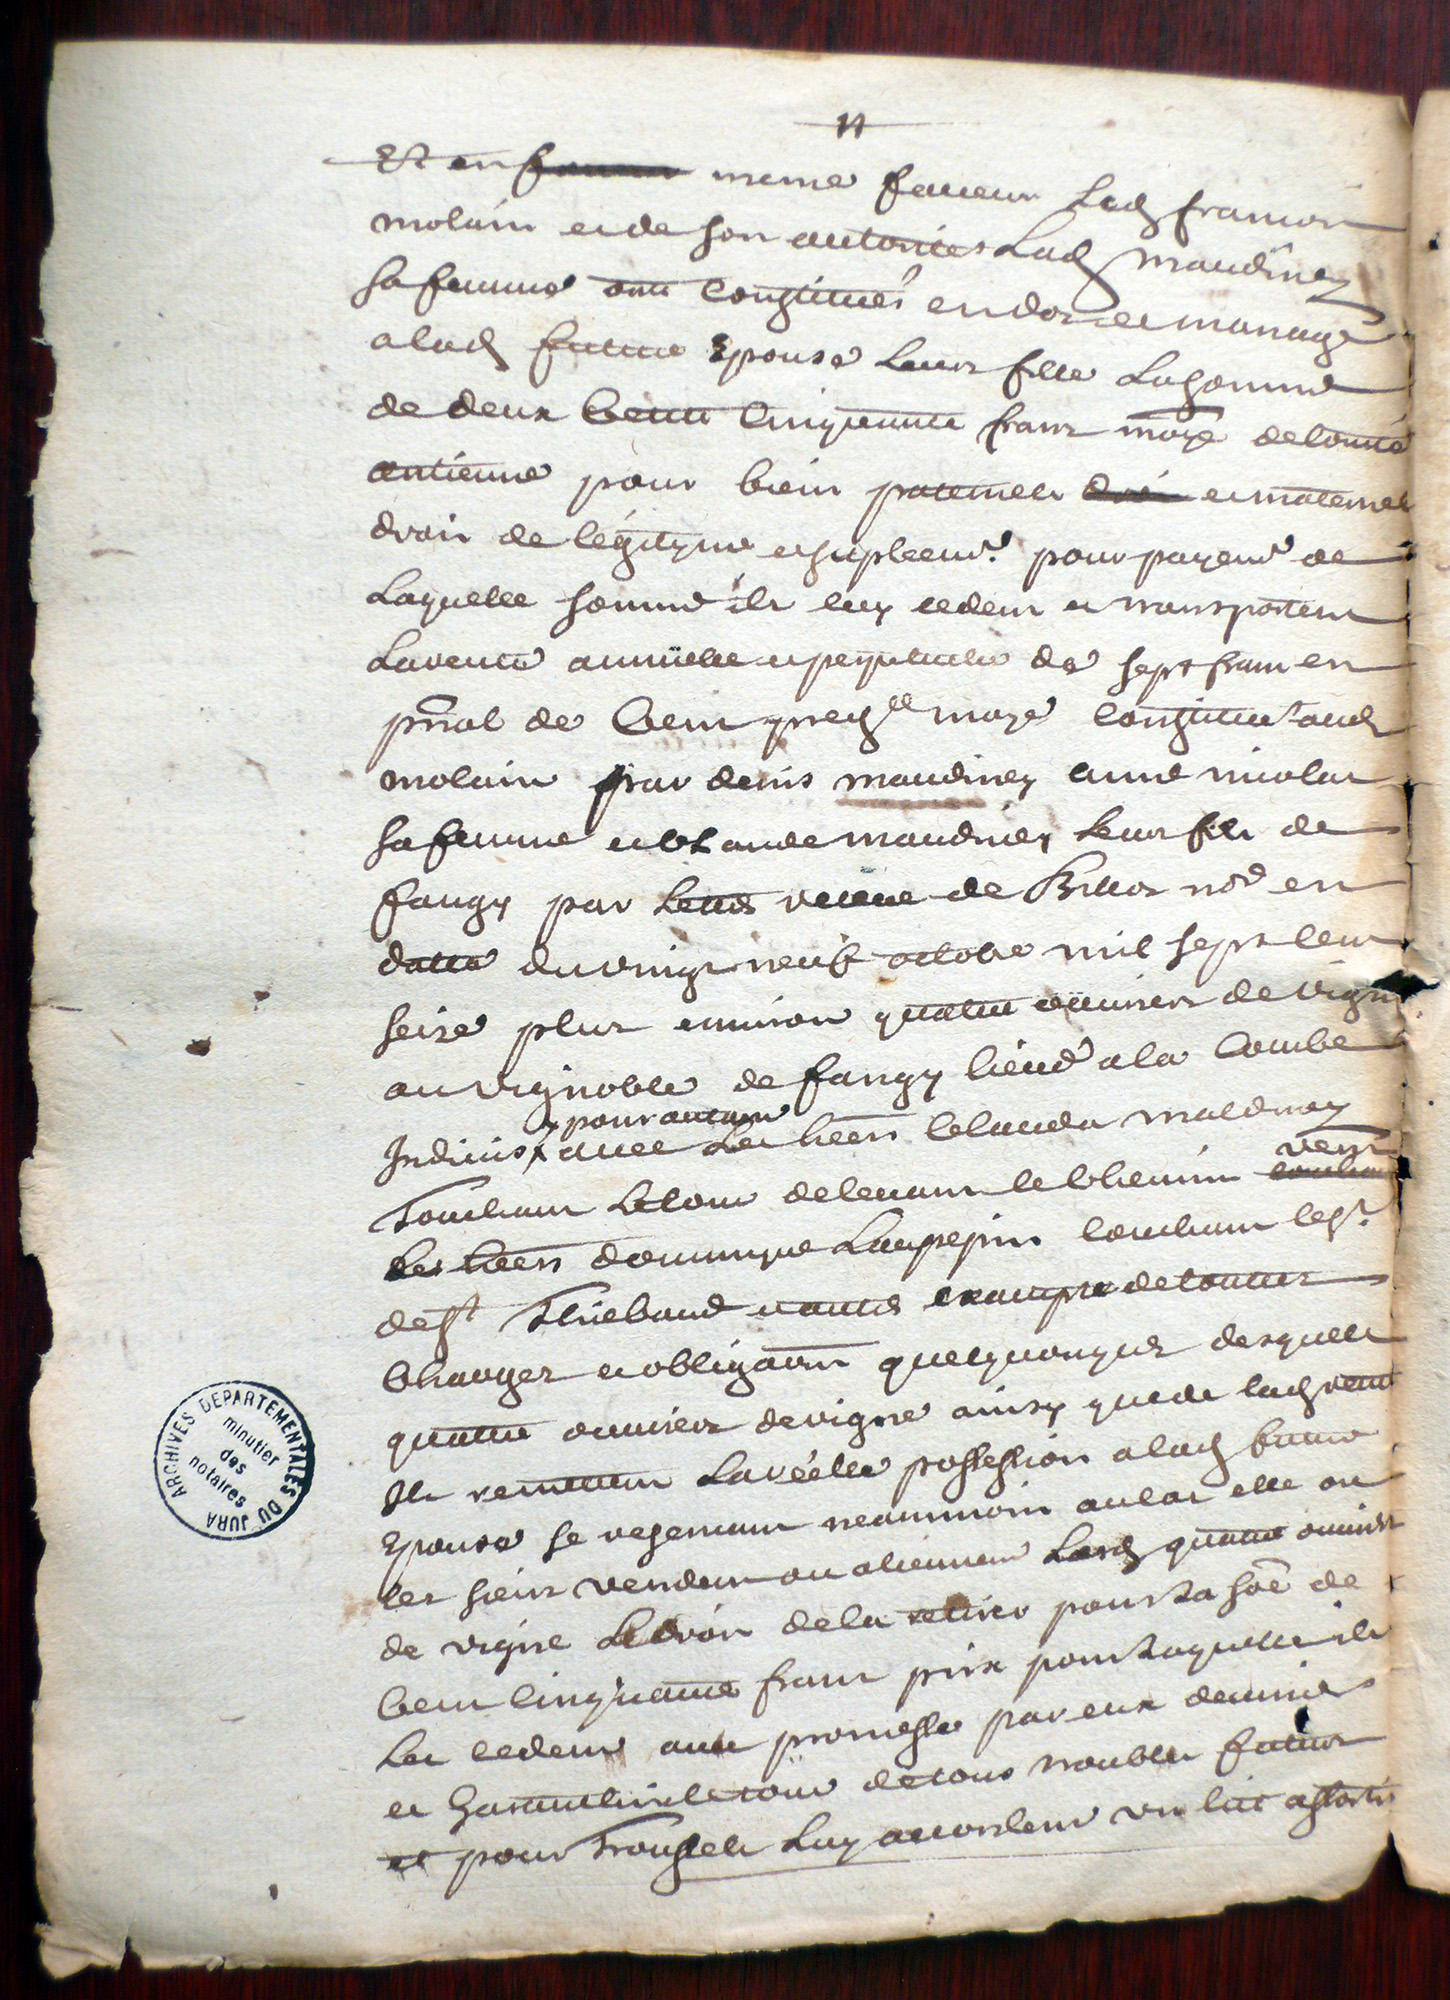 Et en meme faveur Led françois
molain et de son autorité Lad maudiney
sa femme ont constitués en dot et mariage
a lad future Epouse leur fille la somme
de deux Cent Cinquante frans moñe de comté
antienne pour bien paternels et maternels
droit de légityme et suplemt. pour payemt de
Laquelle somme ils luy cedent et transportent
La rente annüelle et perpetuelle de sept frans en
pñal de Cent moñe Constituée aud
molain par denis maudiney anne nicolas
sa femme et Claude maudiney leur fils de
fangy par Lettre receue de Billot noe en
datte du vingt neuf octobre mil sept Cent
seize plus environ quatre oüuriers de vigne
au vignoble de fangy lieud a la Combe
pour autant
Indivis avec les heers Claude maldiney
Touchant Le tout de levant le Chemin vent
Les heers dominique Laupepin Couchant le sr
de st Thiebaud et autres exampte de toutes
Charges et obligãons quelquonques desquels
quatre ouuriers de vigne ainsy que de lad rente
Ils remettent La réelle possession a lad future
Epouse se reservant neanmoin au cas elle ou
les siens vendent ou alienent Lesd quatre ouuriers
de vigne Le droit de les retirer pour La soẽ de
Cent Cinquante frans prix pour Laquelle ils
Les cedent avec promesse par eux
et Garanthir le tout de tous troubles futurs
et pour Trousseler Luy accordent un lict assortis
ARCHIVES DEPARTEMENTALES DU JURA
minutier
des
notaires